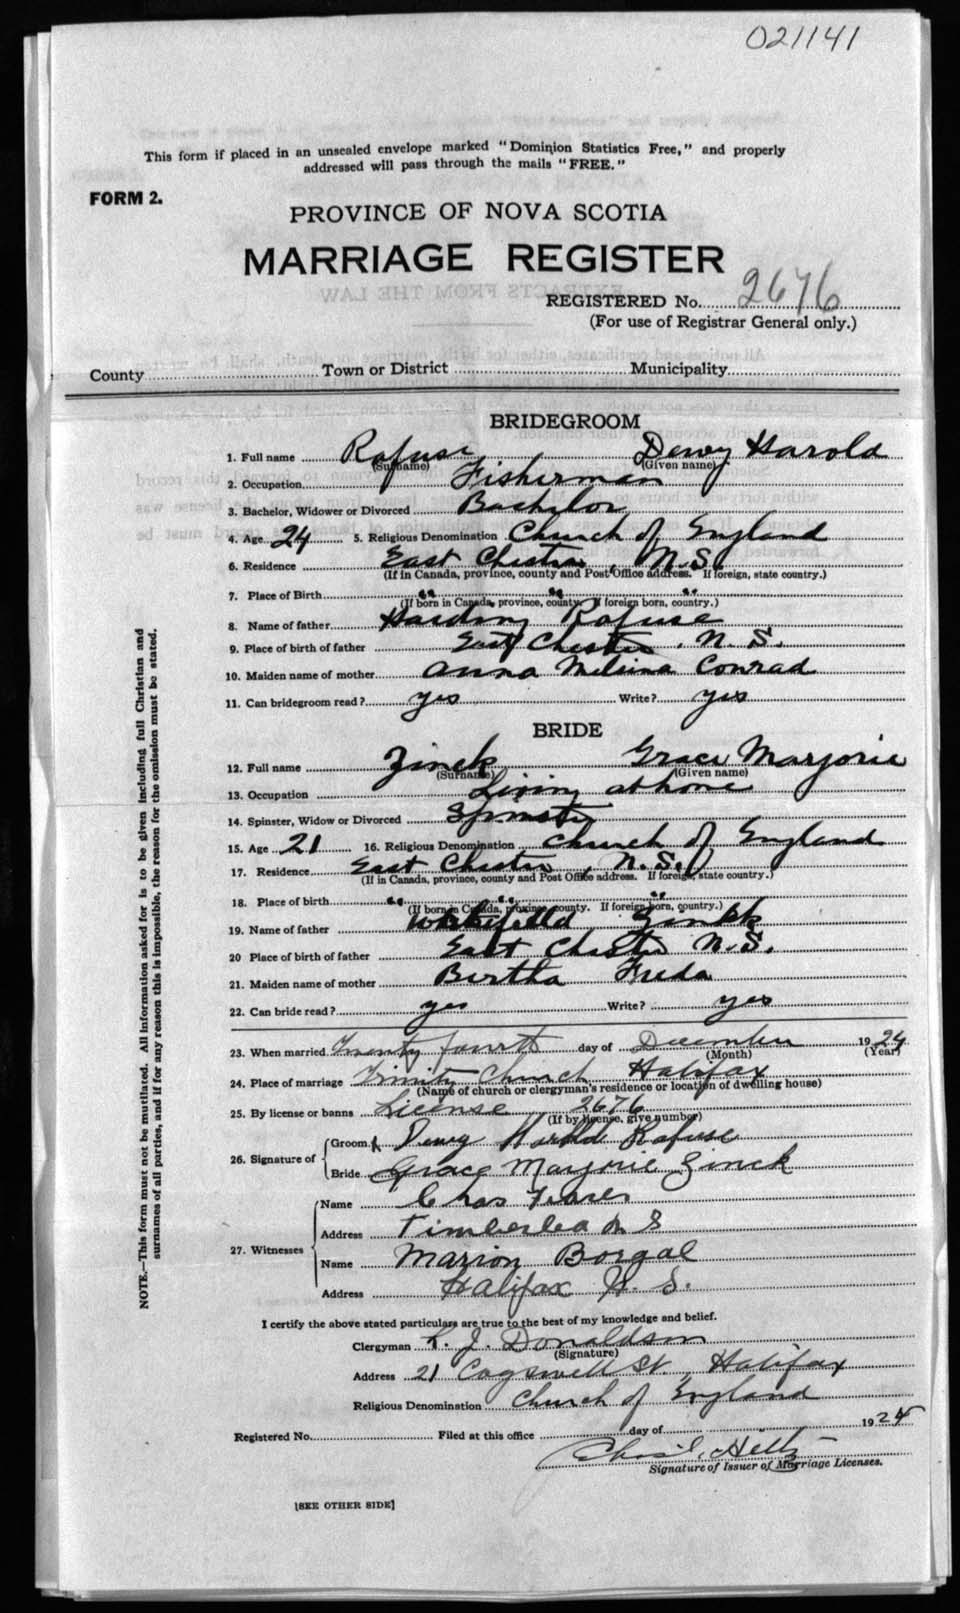 021141
This form if placed in an unsealed envelope marked "Dominion Statistics Free," and properly
addressed will pass through the mails "FREE."
FORM 2.
PROVINCE OF NOVA SCOTIA
MARRIAGE REGISTER
REGISTERED No. 2676
(For use of Registrar General only.)
County Town or District Municipality
BRIDEGROOM
1. Full name Rafuse Dewy Harold
(Surname) (Given name)
2. Occupation Fisherman
3. Bachelor, Widower or Divorced Bachelor
4. Age 24 5. Religious Denomination Church of England
6. Residence East Chester, N.S.
(If in Canada, province, county and Post Office address. If foreign, state country.)
7. Place of Birth " " "
(If born in Canada, province, county. If foreign born, country.)
8. Name of father Harding Rafuse
9. Place of birth of father East Chester, N.S.
10. Maiden name of mother Anna Melsina Conrad
11. Can bridegroom read? yes Write? yes
BRIDE
12. Full name Zinck Grace Marjorie
(Surname) (Given name)
13. Occupation Living at home
14. Spinster, Widow or Divorced Spinster
15. Age 21 16. Religious Denomination Church of England
17. Residence East Chester, N.S.
(If in Canada, province, county and Post Office address. If foreign, state country.)
18. Place of birth " " "
(If born in Canada, province, county. If foreign born, country.)
19. Name of father Zinck
20 Place of birth of father East Chester N.S.
21. Maiden name of mother Bertha Freda
22. Can bride read? yes Write? yes
23. When married Twenty fourth day of December 1924
(Month) (Year)
24. Place of marriage Trinity Church Halifax
(Name of church or clergyman's residence or location of dwelling house)
25. By license or banns License 2676
(If by license, give number)
26. Signature of Groom Dewy Harold Rafuse
Bride Grace Marjorie Zinck
27. Witnesses Name Chas
Address Timberlea N S
Name Marion Borgal
Address Halifax N. S.
I certify the above stated particulars are true to the best of my knowledge and belief.
Clergyman L. J. Donaldson
(Signature)
Address 21 Cogswell St., Halifax
Religious Denomination Church of England
Registered No. Filed at this office day of 1924
Signature of Issuer of Marriage Licenses.
[SEE OTHER SIDE]
NOTE.—This form must not be mutilated. All information asked for is to be given including full Christian and
surnames of all parties, and if for any reason this is impossible, the reason for the omission must be stated.